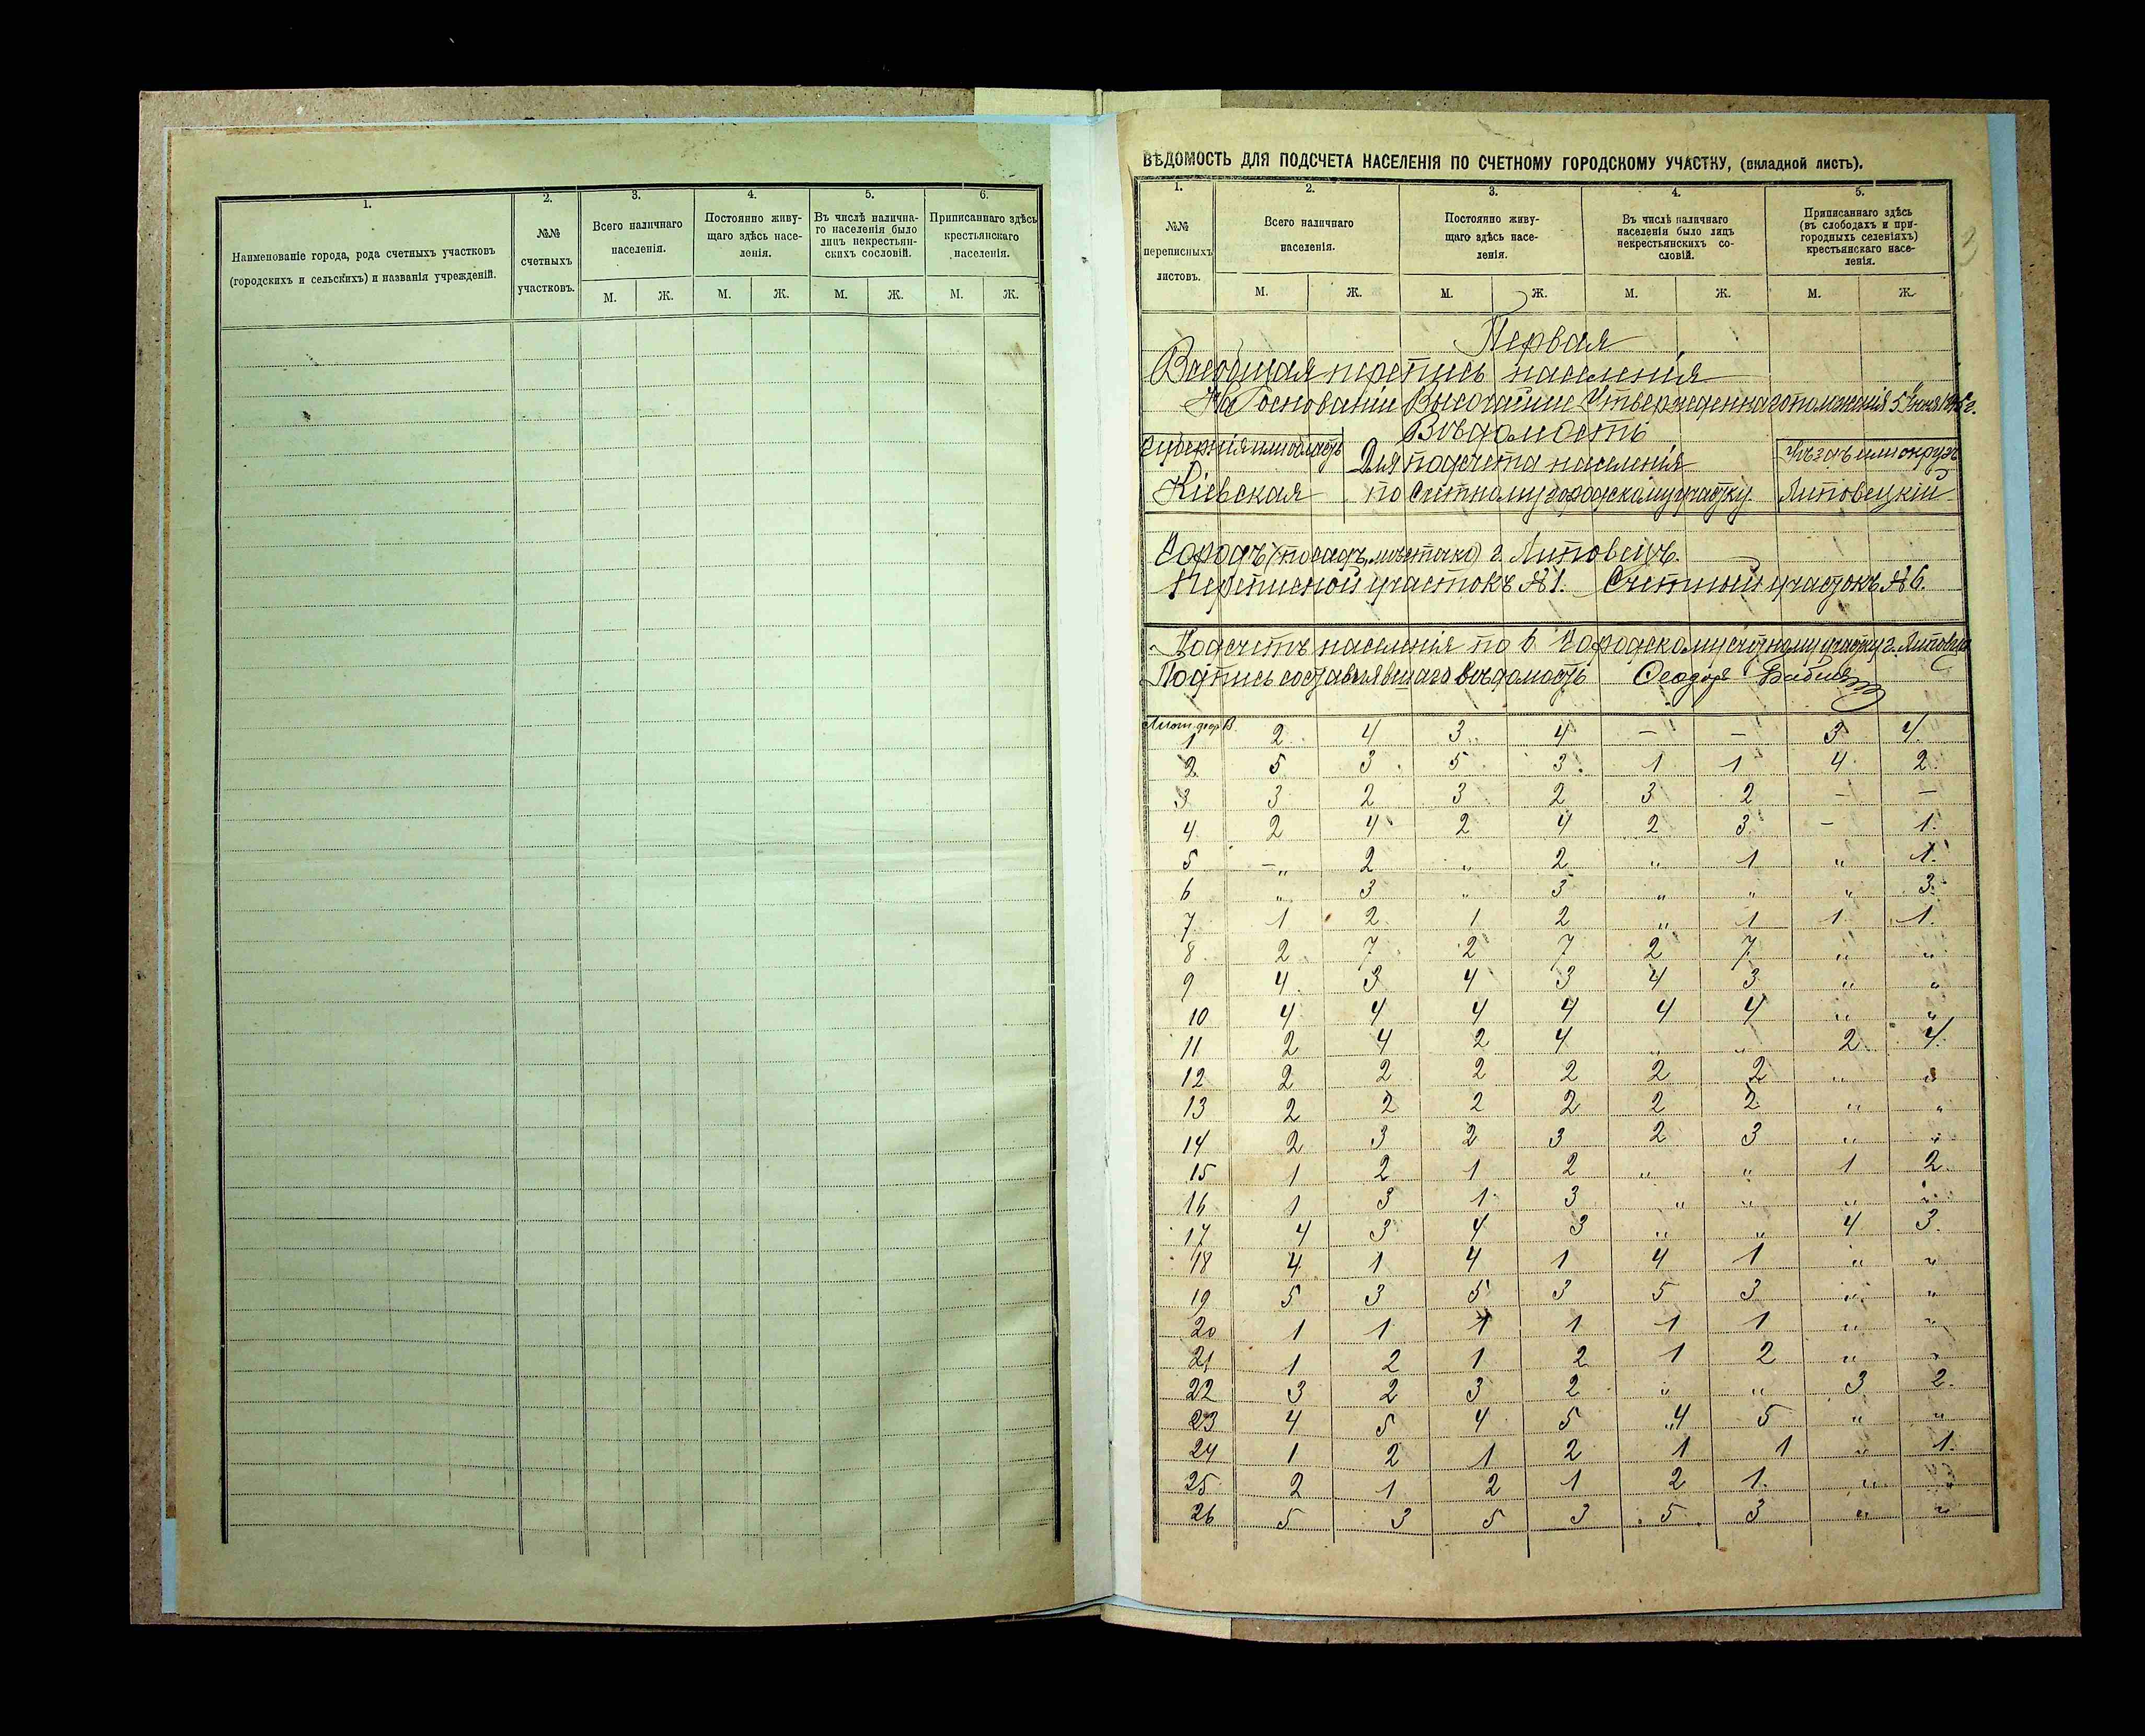 1.
2.
3.
4.
5.
6.
Наименованіе города, рода счетныхъ участковъ
(городскихъ и сельскихъ) и названія учрежденій.
№№
счетныхъ
участковъ.
Всего наличнаго
населенія.
Постоянно живу-
щаго здѣсь насе-
ленія.
Въ числѣ налична-
го населенія было
лицъ некрестьян-
скихъ сословій.
Приписаннаго здѣсь
крестьянскаго
населенія.
М. Ж. М. Ж. М. Ж. М. Ж.
ВѢДОМОСТЬ ДЛЯ ПОДСЧЕТА НАСЕЛЕНІЯ ПО СЧЕТНОМУ ГОРОДСКОМУ УЧАСТКУ, (вкладной листъ).
1.
2.
3.
4.
5.
№№
переписныхъ
листовъ.
Всего наличнаго
населенія.
Постоянно живу-
щаго здѣсь насе-
ленія.
Въ числѣ наличнаго
населенія было лицъ
некрестьянскихъ со-
словій.
Приписаннаго здѣсь
(въ слободахъ и при-
городныхъ селеніяхъ)
крестьянскаго насе-
ленія.
М. Ж. М. Ж. М. Ж. М. Ж.
Первая
Всеобщая перепись населенія
На основаніи Высочайше Утвержденнаго положенія 5 Іюня 1895 г.
Вѣдомость
Губернія или область
Для подсчета населенія
Уѣздъ или округъ
Кіевская
по счетному городскому участку
Липовецкій
Городъ (посадъ, мѣстечко) г. Липовецъ.
Переписной участокъ № 1. Счетный участокъ № 6.
Подсчетъ населенія по 6 Городскому счетному участку г. Липовца
Подпись составлявшаго вѣдомость Ѳеодоръ
1 2 4 3 4 — — 3 4
2 5 3 5 3 1 1 4 2
3 3 2 3 2 3 2 — —
4 2 4 2 4 2 3 — 1
5 — „ 2 „ 2 „ 1 „ 1
6 „ 3 „ 3 „ „ „ 3
7 1 2 1 2 „ 1 1 1
8 2 7 2 7 2 7 „ „
9 4 3 4 3 4 3 „ „
10 4 4 4 4 4 4 „ „
11 2 4 2 4 „ „ 2 4
12 2 2 2 2 2 2 „ „
13 2 2 2 2 2 2 „ „
14 2 3 2 3 2 3 „ „
15 1 2 1 2 „ „ 1 2
16 1 3 1 3 „ „ „ „
17 4 3 4 3 „ „ 4 3
18 4 1 4 1 4 1 „ „
19 5 3 5 3 5 3 „ „
20 1 1 1 1 1 1 „ „
21 1 2 1 2 1 2 „ „
22 3 2 3 2 „ „ 3 2
23 4 5 4 5 „4 5 „ „
24 1 2 1 2 1 1 „ 1
25 2 1 2 1 2 1 „ „
26 5 3 5 3 5 3 „ „